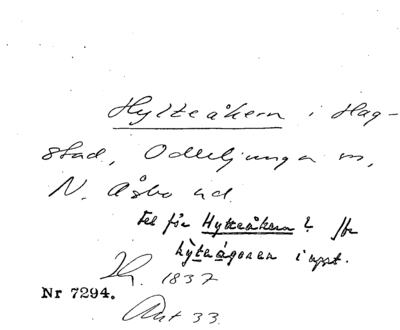 Hylteåkern i Hag-
stad, Oderljunga sn,
N. Åsbo hd.
Fel för Hytteåkern?
hỳteågoren i uppt.
1837
Nr 7294.
33